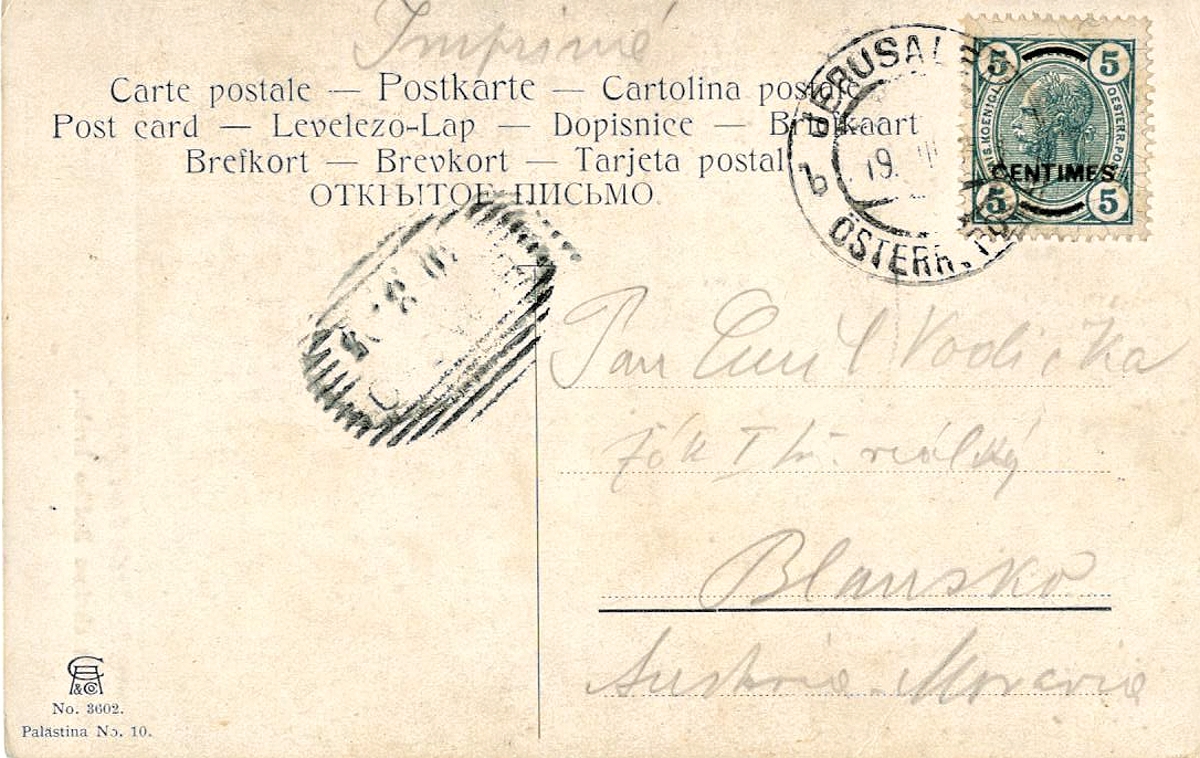 Imprimé
Carte postale — Postkarte — Cartolina postale
Post card — Levelezo-Lap — Dopisnice — Briefkaart
Brefkort — Brevkort — Tarjeta postal
ОТКРЫТОЕ ПИСЬМО
JERUSALEM
19.
b
ÖSTERR. POST
5 5
OESTERR. POST
CENTIMES
5 5
Pan Emil Vodička
žák I tř. reálky
Blansko
Austria-Moravia
&Co
No. 3602.
Palästina No. 10.